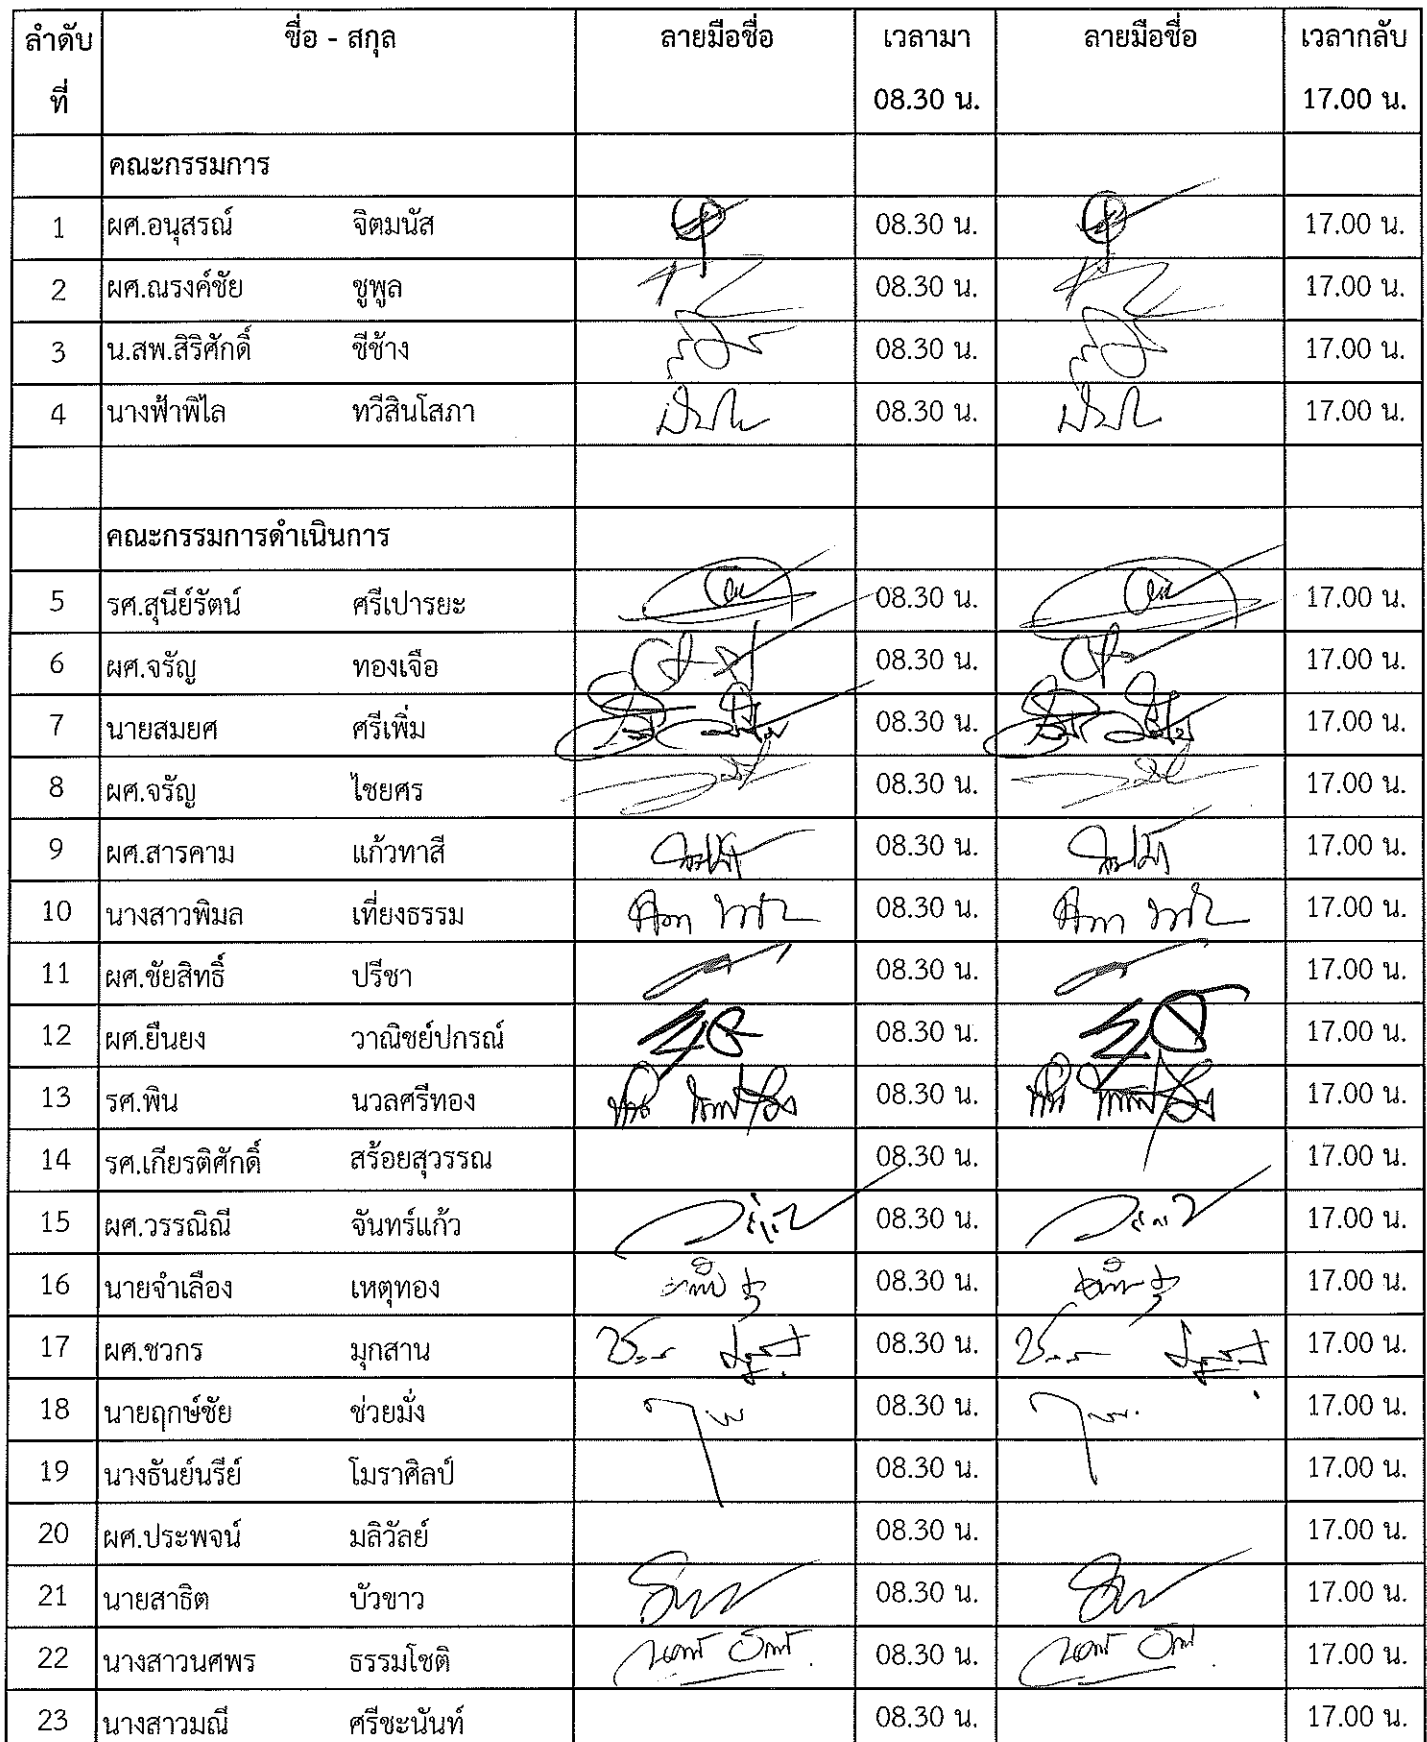 ลำดับที่ ชื่อ - สกุล ลายมือชื่อ เวลามา 08.30 น. ลายมือชื่อ เวลากลับ 17.00 น.
คณะกรรมการ
1 ผศ.อนุสรณ์ จิตมนัส 08.30 น. 17.00 น.
2 ผศ.ณรงค์ชัย ชูพูล 08.30 น. 17.00 น.
3 น.สพ.สิริศักดิ์ ชีช้าง 08.30 น. 17.00 น.
4 นางฟ้าพิไล ทวีสินโสภา 08.30 น. 17.00 น.
คณะกรรมการดำเนินการ
5 รศ.สุนีย์รัตน์ ศรีเปารยะ 08.30 น. 17.00 น.
6 ผศ.จรัญ ทองเจือ 08.30 น. 17.00 น.
7 นายสมยศ ศรีเพิ่ม 08.30 น. 17.00 น.
8 ผศ.จรัญ ไชยศร 08.30 น. 17.00 น.
9 ผศ.สารคาม แก้วทาสี 08.30 น. 17.00 น.
10 นางสาวพิมล เที่ยงธรรม 08.30 น. 17.00 น.
11 ผศ.ชัยสิทธิ์ ปรีชา 08.30 น. 17.00 น.
12 ผศ.ยืนยง วาณิชย์ปกรณ์ 08.30 น. 17.00 น.
13 รศ.พิน นวลศรีทอง 08.30 น. 17.00 น.
14 รศ.เกียรติศักดิ์ สร้อยสุวรรณ 08.30 น. 17.00 น.
15 ผศ.วรรณิณี จันทร์แก้ว 08.30 น. 17.00 น.
16 นายจำเลือง เหตุทอง 08.30 น. 17.00 น.
17 ผศ.ชวกร มุกสาน 08.30 น. 17.00 น.
18 นายฤกษ์ชัย ช่วยมั่ง 08.30 น. 17.00 น.
19 นางธันย์นรีย์ โมราศิลป์ 08.30 น. 17.00 น.
20 ผศ.ประพจน์ มลิวัลย์ 08.30 น. 17.00 น.
21 นายสาธิต บัวขาว 08.30 น. 17.00 น.
22 นางสาวนศพร ธรรมโชติ 08.30 น. 17.00 น.
23 นางสาวมณี ศรีชะนันท์ 08.30 น. 17.00 น.